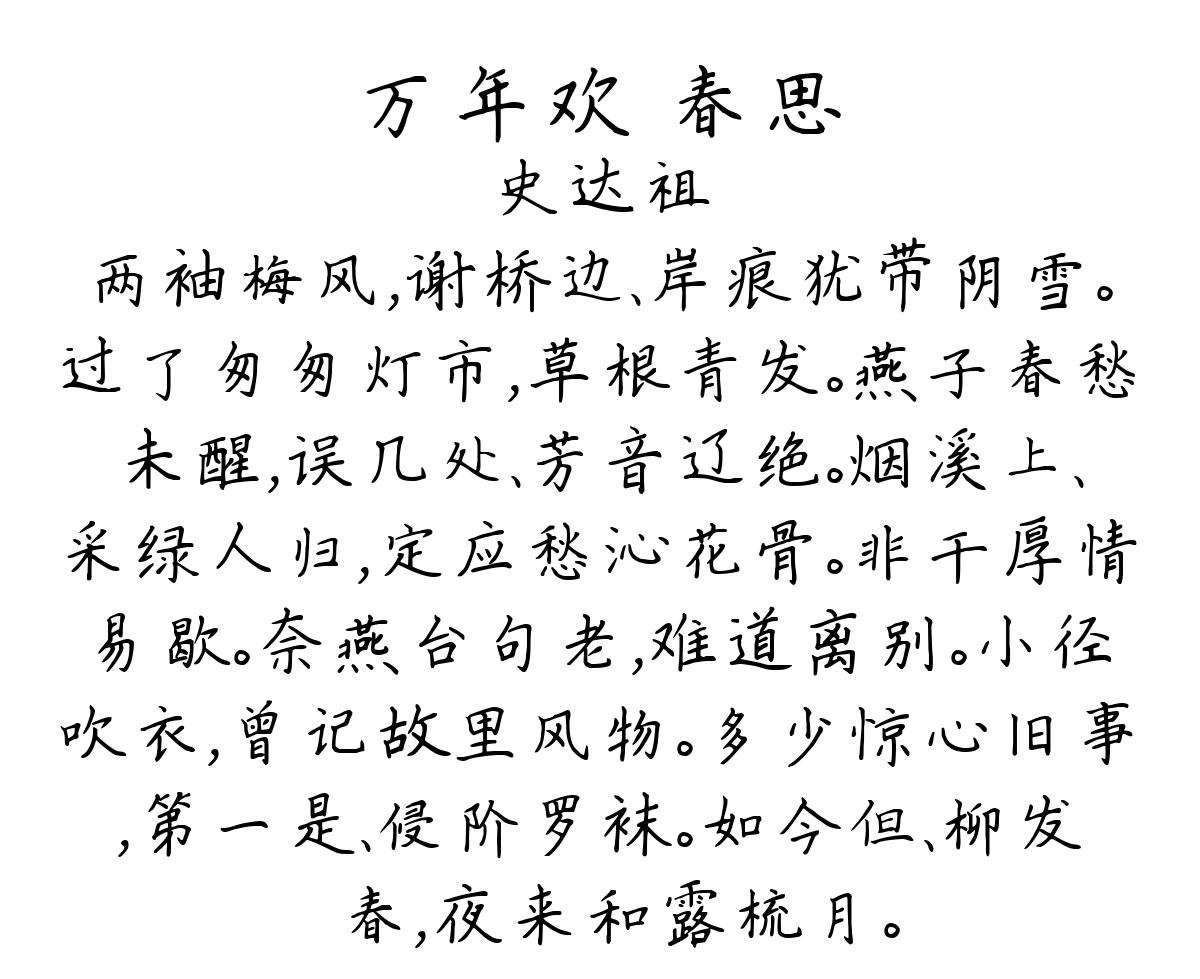 万年欢 春思
史达祖
两袖梅风,谢桥边、岸痕犹带阴雪。
过了匆匆灯市,草根青发。燕子春愁
未醒,误几处、芳音辽绝。烟溪上、
采绿人归,定应愁沁花骨。非干厚情
易歇。奈燕台句老,难道离别。小径
吹衣,曾记故里风物。多少惊心旧事
,第一是、侵阶罗袜。如今但、柳发
春,夜来和露梳月。